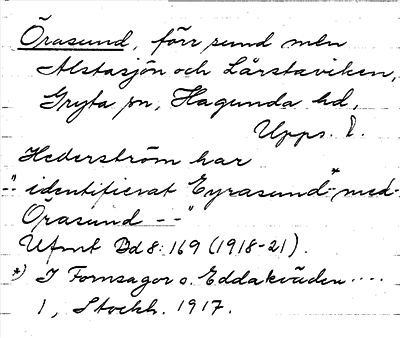 Örasund, förr sund mln
Alstasjön och Lårstaviken,
Gryta sn, Hagunda hd,
Upps. l.
Hederström har
-"- identifierat Eyrasund *) med
Örasund - -"
Ufmt Bd 8: 169 (1918-21).
*) I Fornsagor o. Eddakväden ....
1, Stockh. 1917.